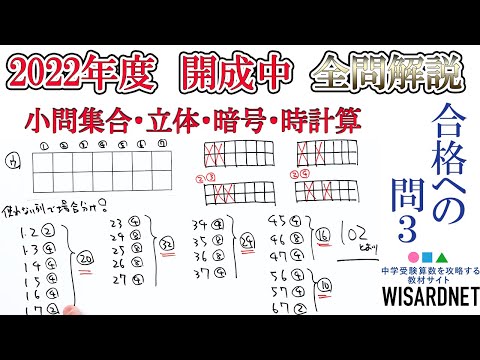 2022年度 開成中 全問解説
小問集合・立体・暗号・時計算
合格への
問3
① ② ③ ④ ⑤ ⑥ ⑦
ウ
② ③
② ④
使わない列で場合分け!
12 ②
13 ④
14 ④
15 ④
16 ④
17 ②
⑳
23 ④
24 ⑧
25 ⑧
26 ⑧
27 ④
㉜
34 ④
35 ⑧
36 ⑧
37 ④
㉔
45 ④
46 ⑧
47 ④
⑯
56 ④
57 ④
67 ②
⑩
102
とおり
中学受験算数を攻略する
教材サイト
WISARDNET